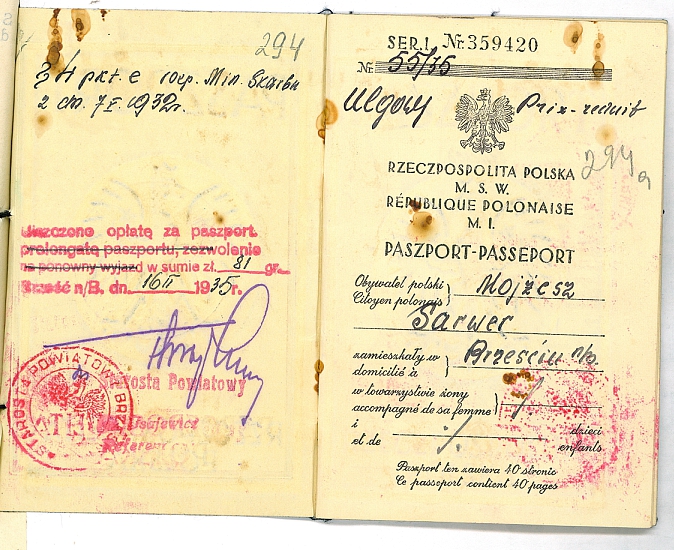 294
§ 4 pkt. e rozp. Min. Skarbu
z dn. 7 V. 1932r.
Uiszczono opłatę za paszport.
prolongatę paszportu, zezwolenie
na ponowny wyjazd w sumie zł. 81 gr.
Brześć n/B. dn. 16 II 1935 r.
Starosta Powiatowy
Referent
STAROSTA POWIATOWY
SER. I. № 359420
Nr. 55/35
Ulgowy Prix-reduit
294a
RZECZPOSPOLITA POLSKA
M. S. W.
RÉPUBLIQUE POLONAISE
M. I.
PASZPORT-PASSEPORT
Obywatel polski
Citoyen polonais
Mojżesz
Sarwer
zamieszkały w
domicilié à
Brześciu n/B
w towarzystwie żony
accompagné de sa femme
i dzieci
et de enfants
Paszport ten zawiera 40 stronic
Ce passeport contient 40 pages